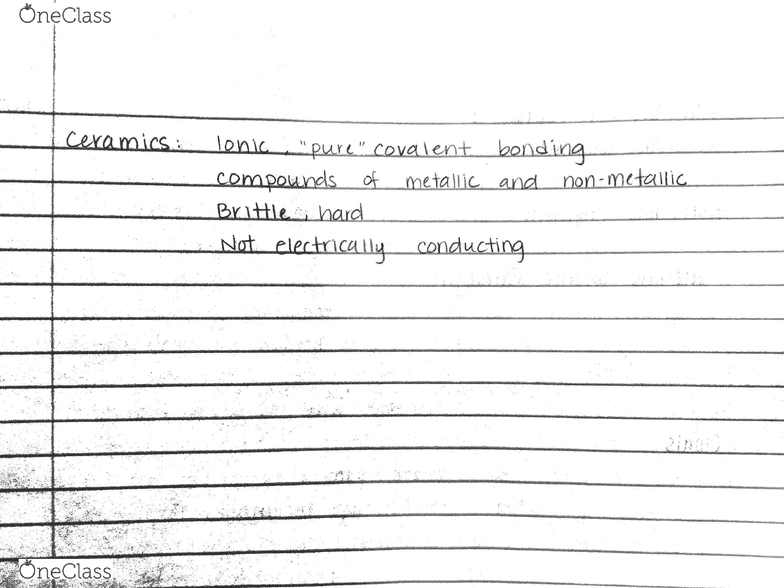 OneClass
Ceramics: Ionic, "pure" covalent bonding
compounds of metallic and non-metallic
Brittle, hard
Not electrically conducting
OneClass